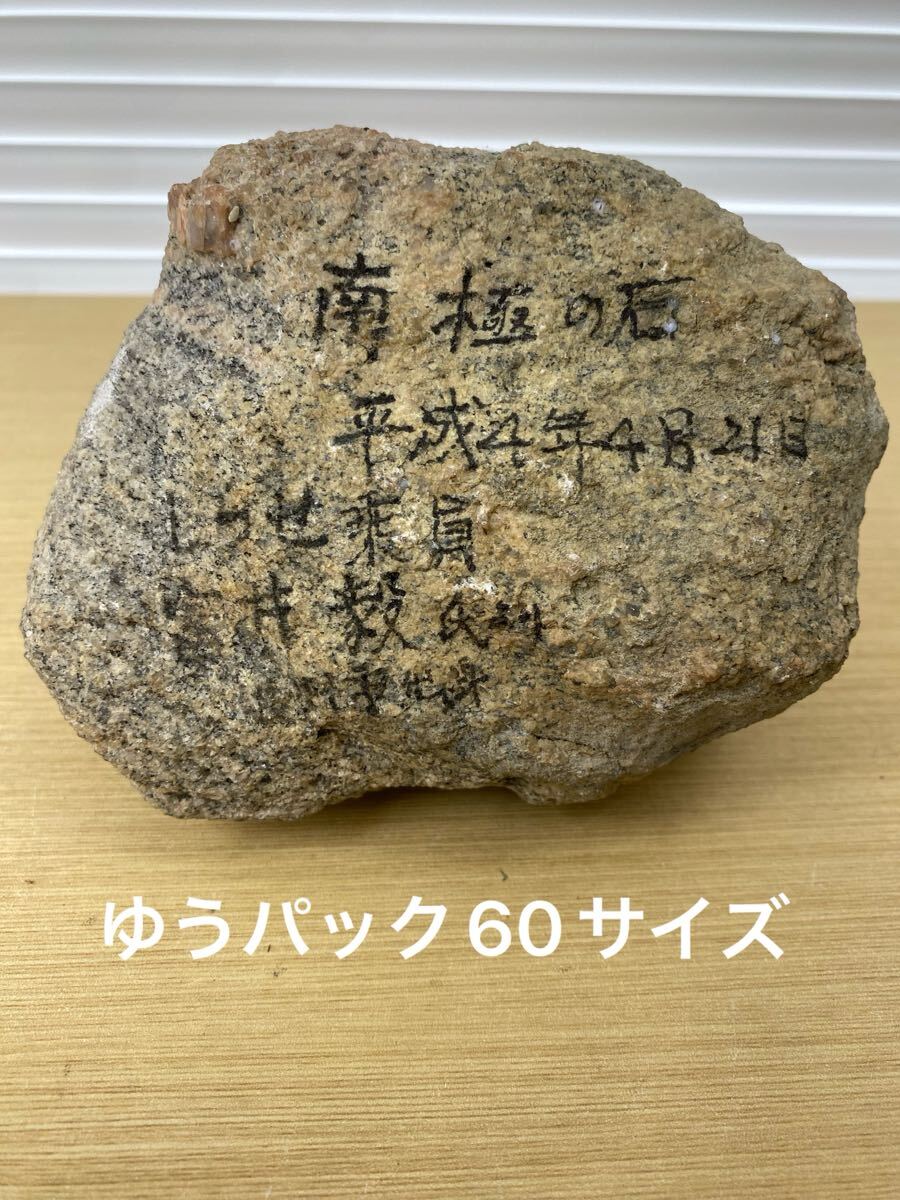 南極の石
平成4年4月21日
しらせ乗員
井 毅 氏より
ゆうパック60サイズ